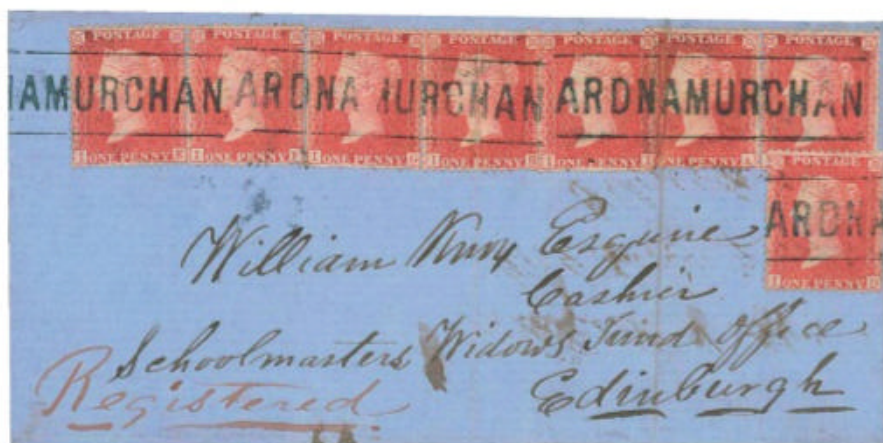 POSTAGE POSTAGE POSTAGE POSTAGE POSTAGE POSTAGE POSTAGE
AMURCHAN ARDNA URCHAN ARDNAMURCHAN
ONE PENNY ONE PENNY ONE PENNY ONE PENNY ONE PENNY ONE PENNY ONE PENNY
POSTAGE
ARDNA
ONE PENNY
William Knox Esquire
Cashier
Schoolmasters Widows Fund Office
Registered
Edinburgh